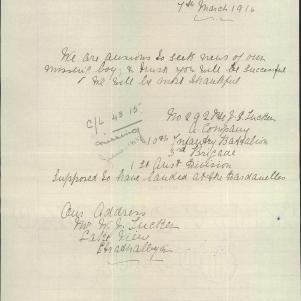 7th March 1916
We are anxious to seek news of our
missing boy, & trust you will be successful
& we will be most thankful
C/L 4315
missing
No 292 J. S. Tucker
A Company
10th Infantry Battalion
3rd Brigade
1st Aust Division
Supposed to have landed at the Dardanelles
Our Address
Tucker
Lake View
Strathalbyn